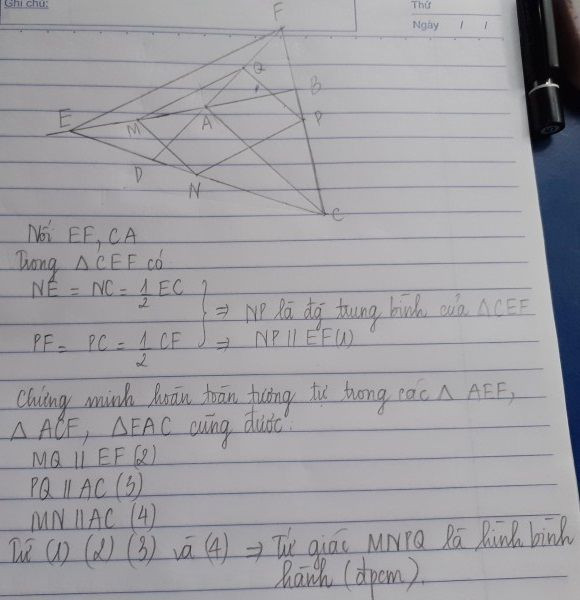 Ghi chú:
Thứ
Ngày / /
F
Q
B
E
M
A
P
D
N
C
Nối EF, CA
Trong △CEF có
NE = NC = 1/2 EC
PF = PC = 1/2 CF
} ⇒ NP là đg trung bình của △CEF
⇒ NP // EF (1)
Chứng minh hoàn toàn tương tự trong các △ AEF,
△ ACF, △EAC cũng được:
MQ // EF (2)
PQ // AC (3)
MN // AC (4)
Từ (1) (2) (3) và (4) ⇒ Tứ giác MNPQ là hình bình
hành (đpcm).